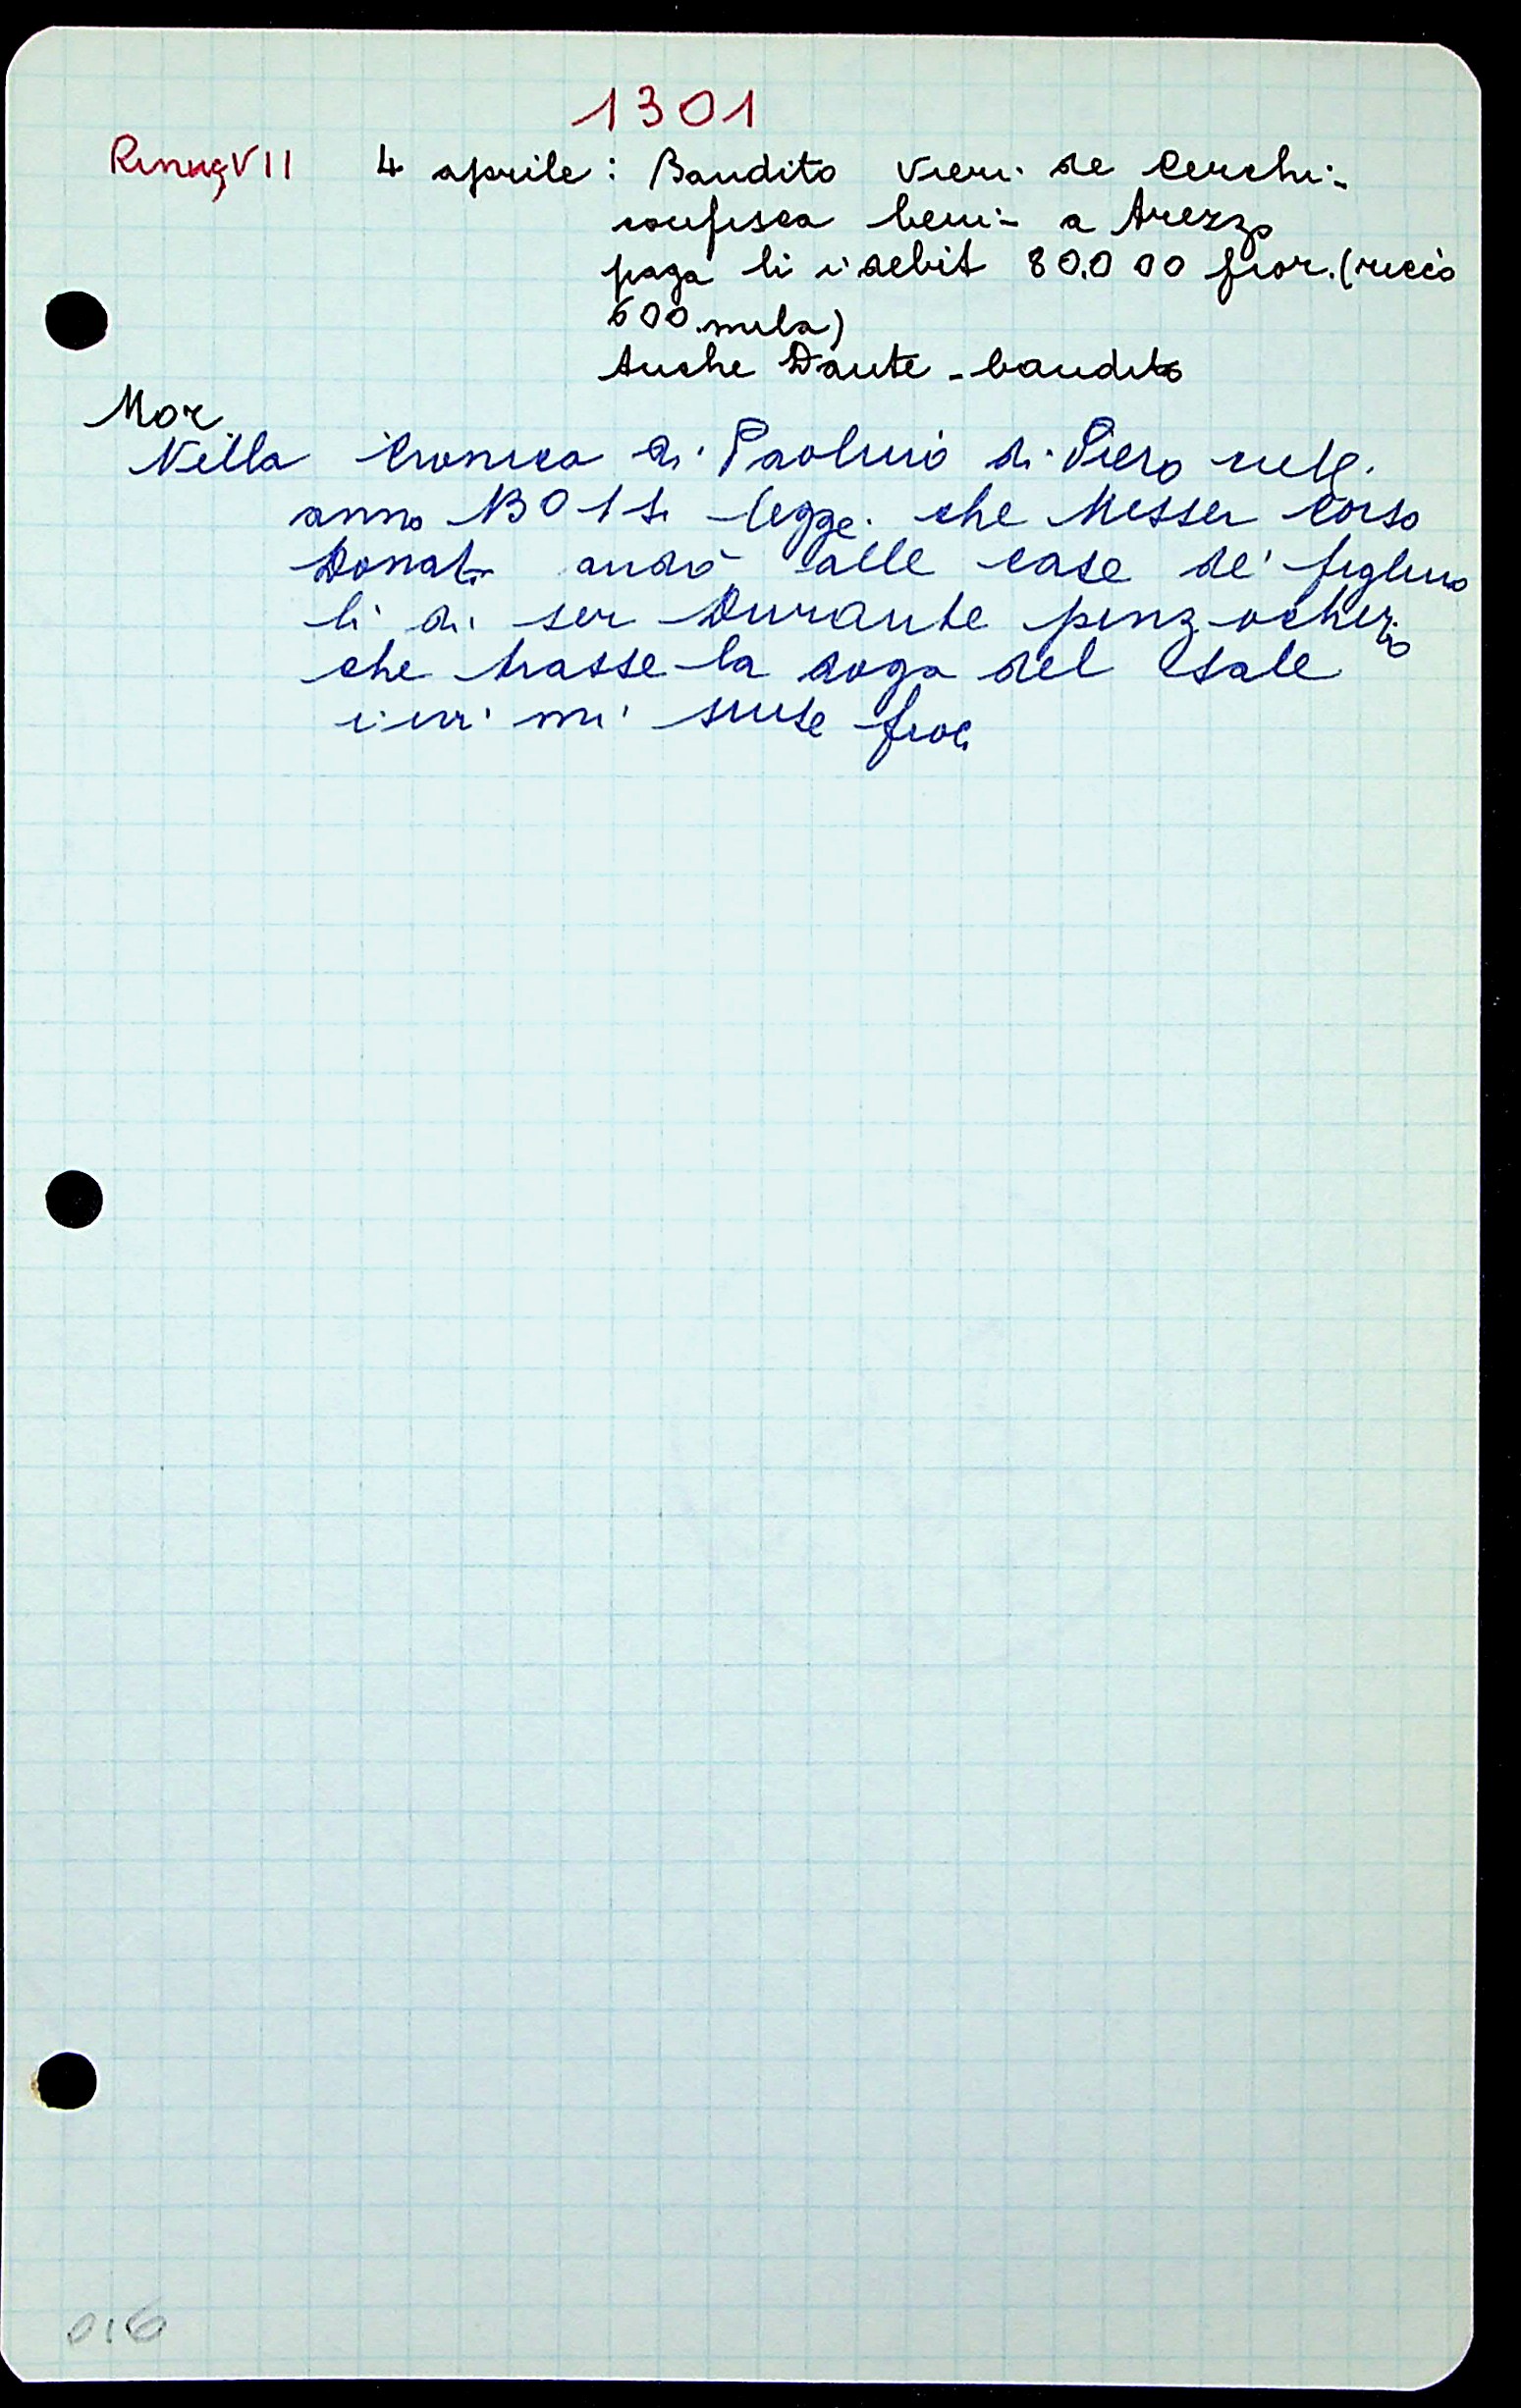 1301
Rinuç VII 4 aprile: Bandito Vieri de Cerchi -
confisca beni - a Arezzo
paga li i debit 80.000 fior. (riccò
600 mila)
Anche Dante - bandito
Mor
Nella Cronica di Paolino di Piero nell.
anno 1301 si legge. che Messer Corso
Donati andò alle case de' figliuo
li di ser Durante pinzochero
che trasse la doga del sale
mise
016